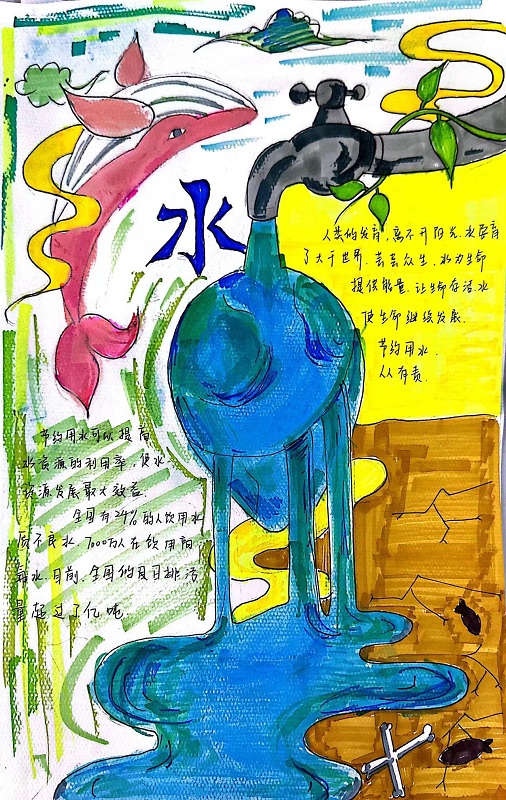 水
人类的发育,离不开阳光.水孕育
了大千世界.芸芸众生.水为生命
提供能量.让生命存活.水
使生命继续发展.
节约用水.
人人有责.
节约用水可以提高
水资源的利用率,使水
资源发展最大效益.
全国有24%的人饮用水
质不良水.7000万人在饮用高
氟水.目前.全国的每日排污
量超过了亿吨.